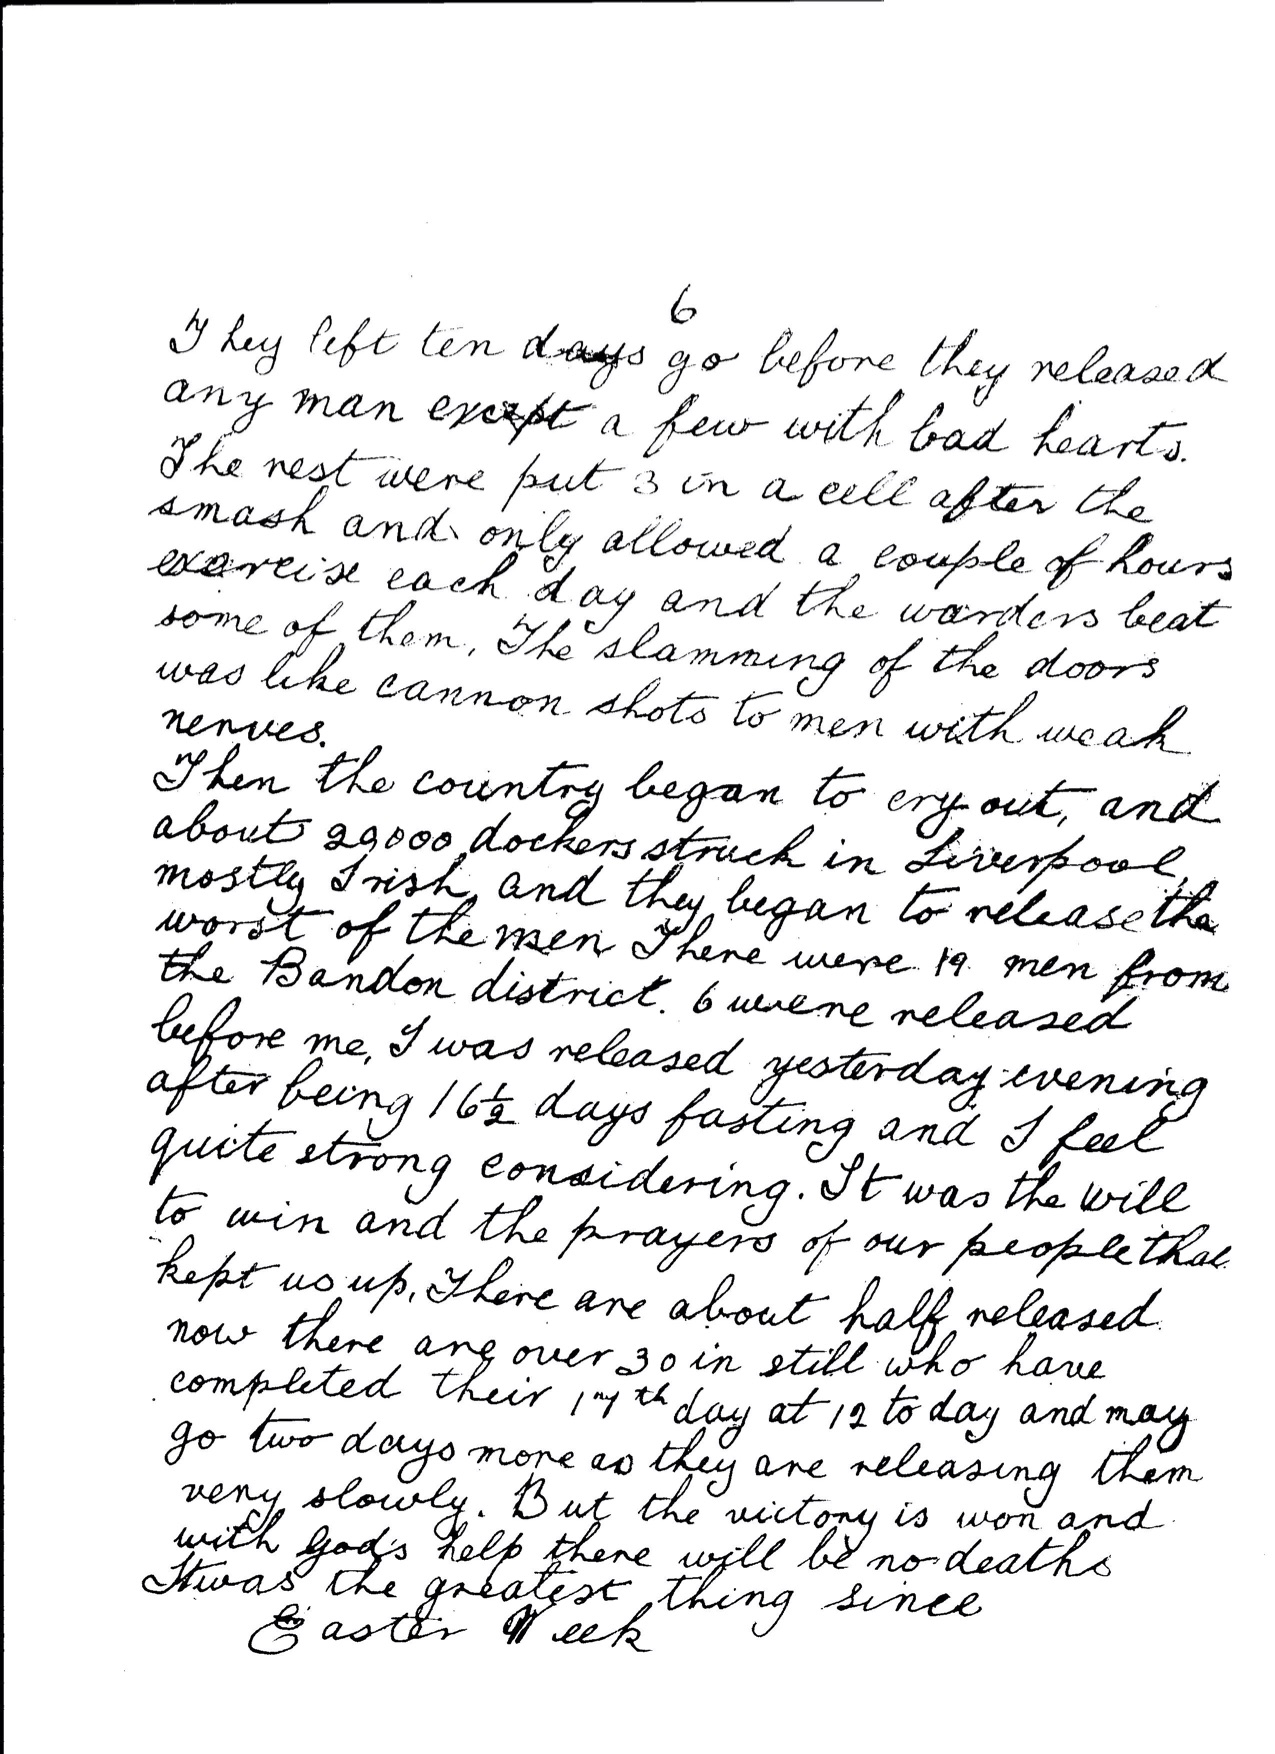 6
They left ten days go before they released
any man except a few with bad hearts.
The rest were put 3 in a cell after the
smash and only allowed a couple of hours
exercise each day and the warders beat
some of them, The slamming of the doors
was like cannon shots to men with weak
nerves.
Then the country began to cry out, and
about 29000 dockers struck in Liverpool,
mostly Irish, and they began to release the
worst of the men There were 19 men from
the Bandon district. 6 were released
before me, I was released yesterday evening
after being 16½ days fasting and I feel
quite strong considering. It was the will
to win and the prayers of our people that
kept us up. There are about half released
now there are over 30 in still who have
completed their 17th day at 12 to day and may
go two days more as they are releasing them
very slowly. But the victory is won and
with God's help there will be no deaths
It was the greatest thing since
Easter Week